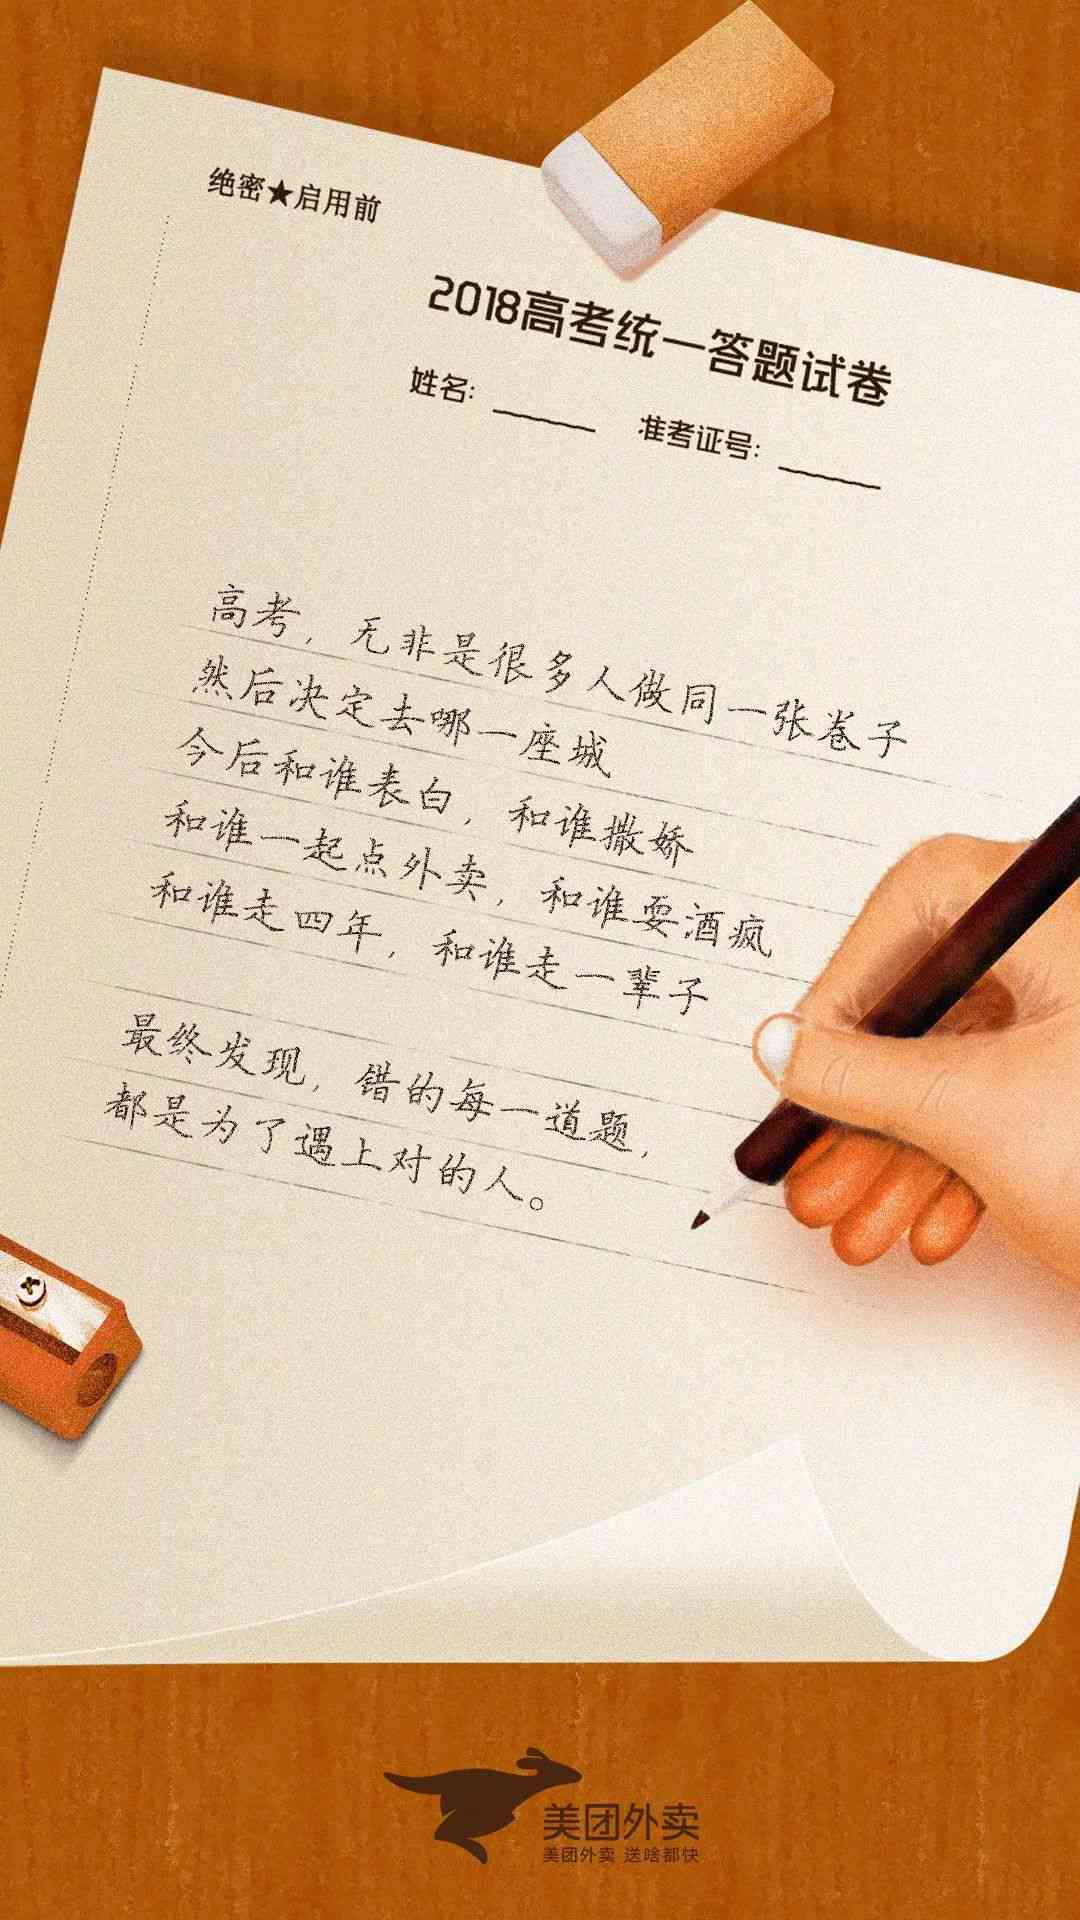 绝密★启用前
2018高考统一答题试卷
姓名: 准考证号:
高考，无非是很多人做同一张卷子
然后决定去哪一座城
今后和谁表白，和谁撒娇
和谁一起点外卖，和谁耍酒疯
和谁走四年，和谁走一辈子
最终发现，错的每一道题，
都是为了遇上对的人。
美团外卖
美团外卖 送啥都快